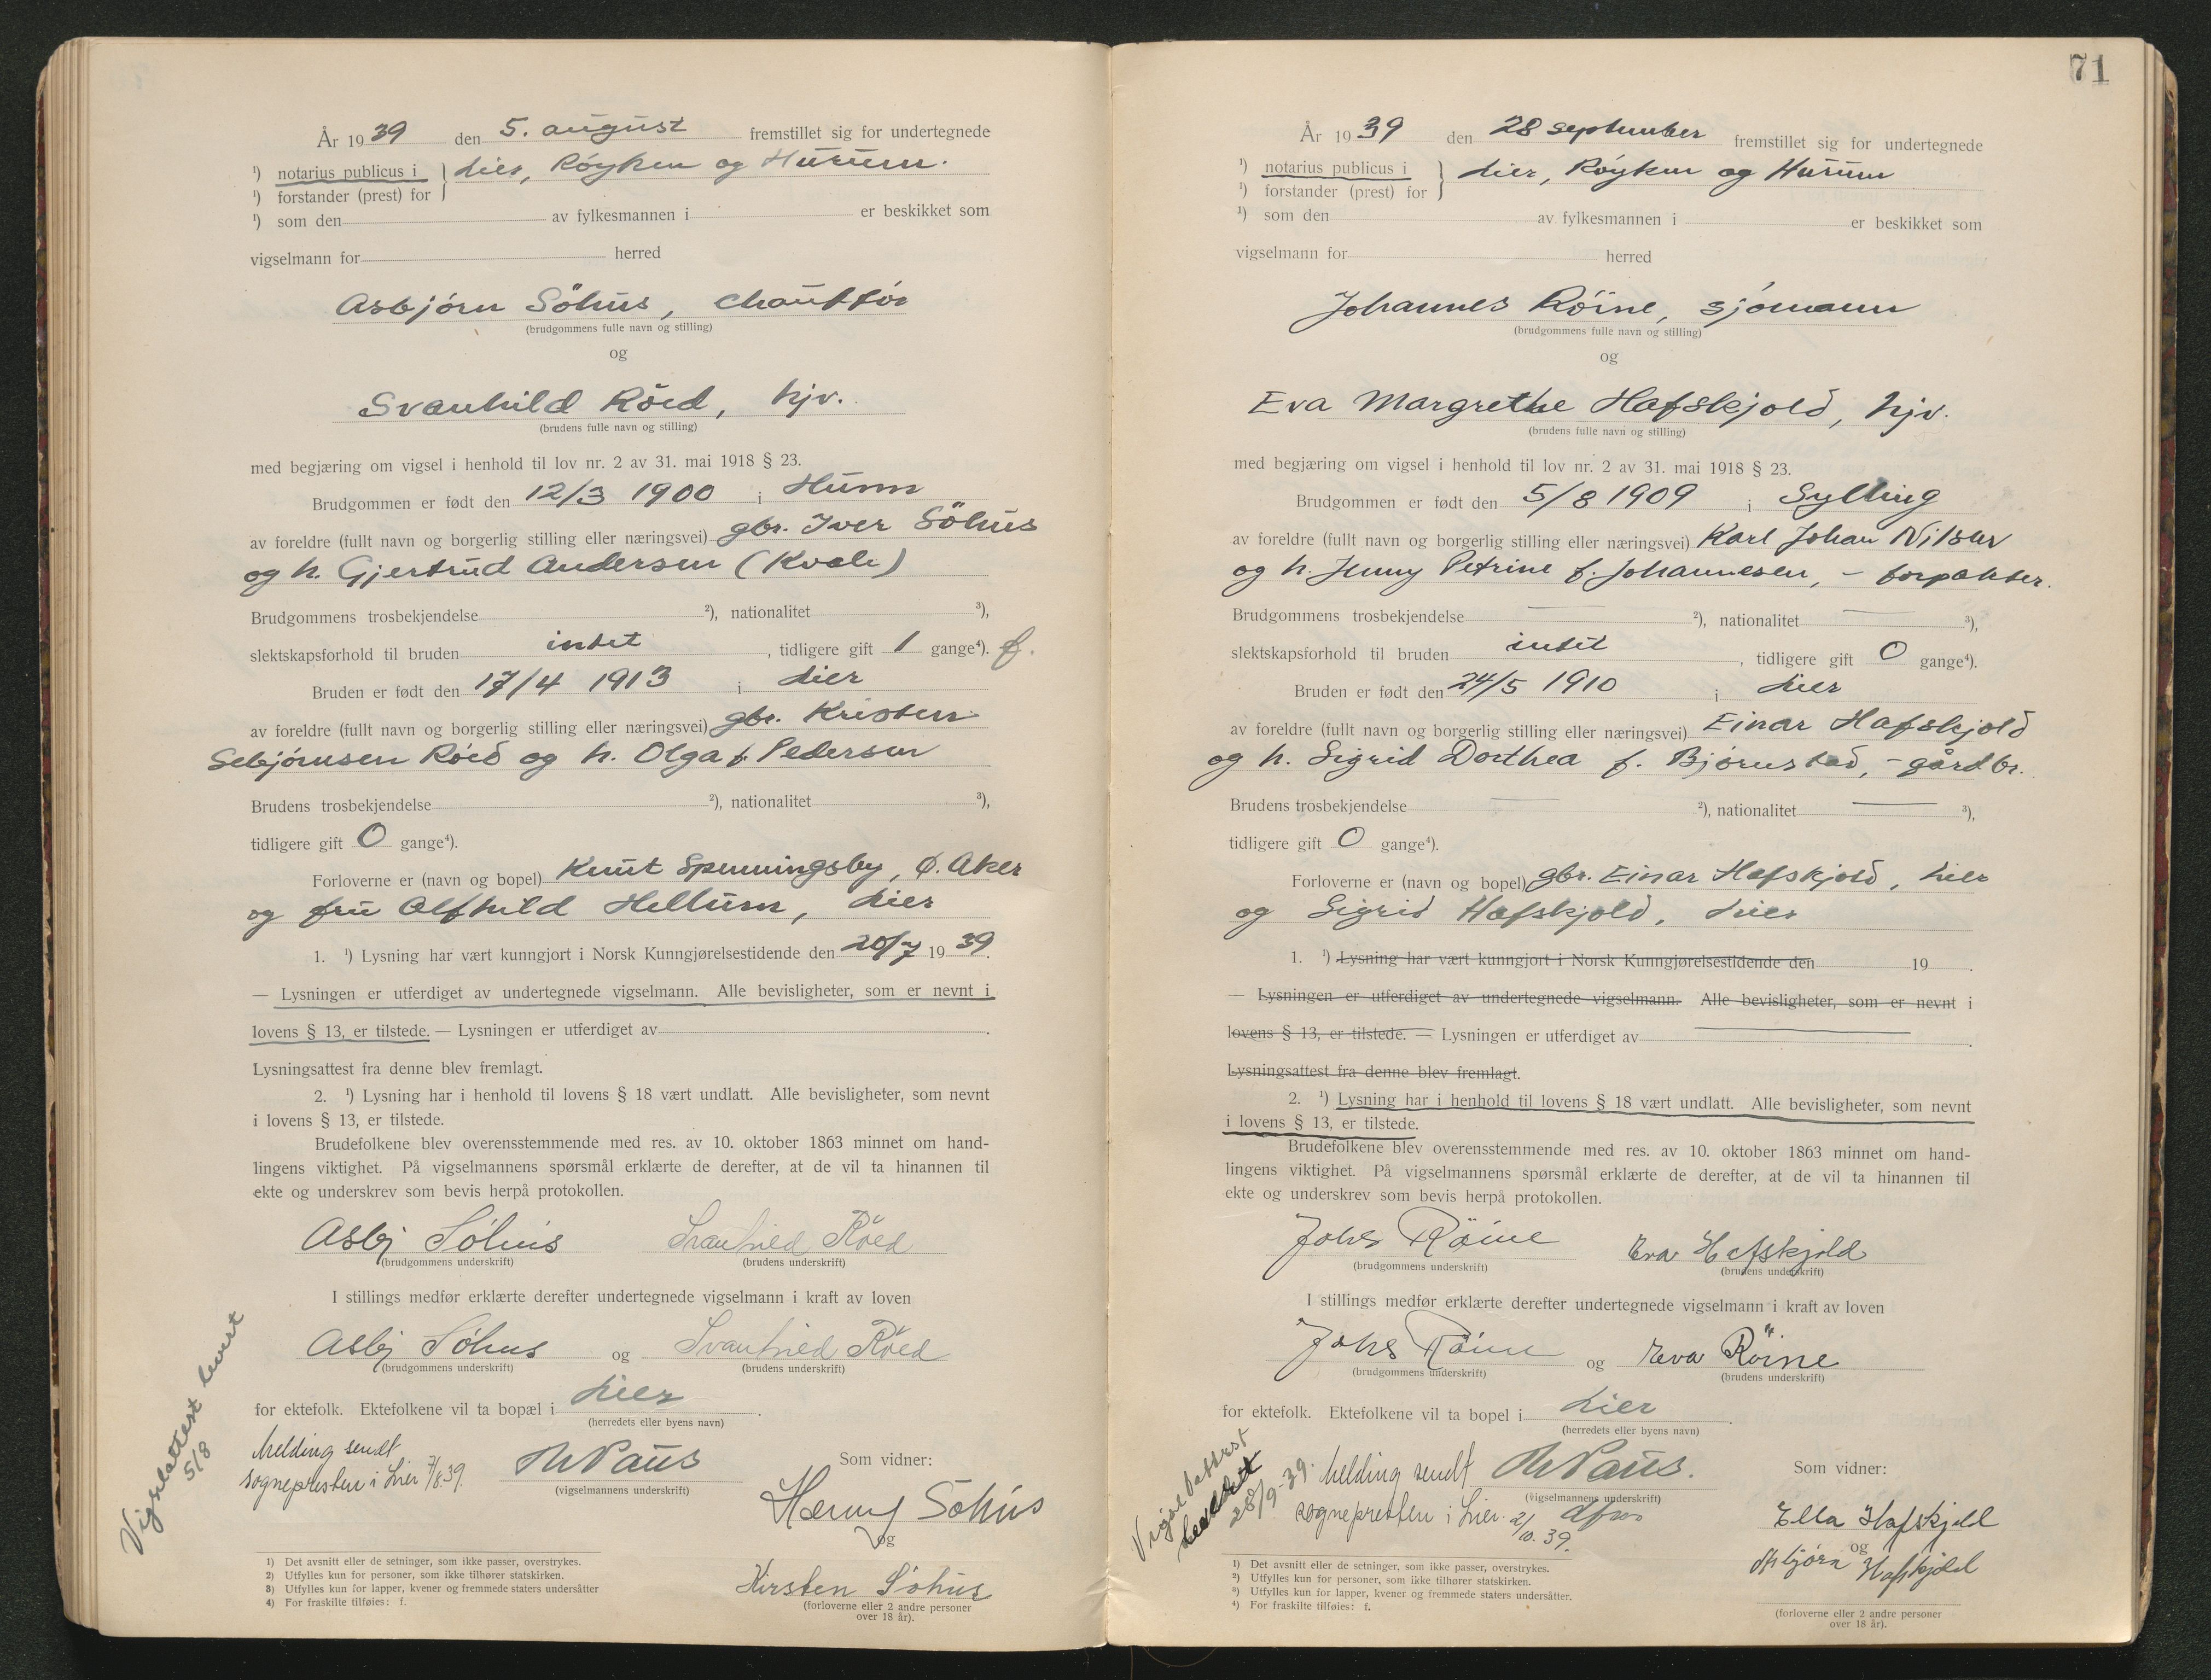 År 1939 den 5. august fremstillet sig for undertegnede
¹) notarius publicus i } Lier, Røyken og Hurum.
¹) forstander (prest) for
¹) som den av fylkesmannen i er beskikket som
vigselmann for herred
Asbjørn Söhus, chauffør
(brudgommens fulle navn og stilling)
og
Svanhild Röed, hjv.
(brudens fulle navn og stilling)
med begjæring om vigsel i henhold til lov nr. 2 av 31. mai 1918 § 23.
Brudgommen er født den 12/3 1900 i Hurum
av foreldre (fullt navn og borgerlig stilling eller næringsvei) gbr. Iver Söhus
og h. Gjertrud Andersen (Kvale)
Brudgommens trosbekjendelse ²), nationalitet ³),
slektskapsforhold til bruden intet, tidligere gift 1 gange⁴). f.
Bruden er født den 17/4 1913 i Lier
av foreldre (fullt navn og borgerlig stilling eller næringsvei) gbr. Kristen
Sebjørnsen Röed og h. Olga f. Pedersen
Brudens trosbekjendelse ²), nationalitet ³),
tidligere gift 0 gange⁴).
Forloverne er (navn og bopel) Knut Spenningsby, Ø. Aker
og fru Alfhild Hellum, Lier
1. ¹) Lysning har vært kunngjort i Norsk Kunngjørelsestidende den 20/7 1939.
— Lysningen er utferdiget av undertegnede vigselmann. Alle bevisligheter, som er nevnt i
lovens § 13, er tilstede. — Lysningen er utferdiget av .
Lysningsattest fra denne blev fremlagt.
2. ¹) Lysning har i henhold til lovens § 18 vært undlatt. Alle bevisligheter, som nevnt
i lovens § 13, er tilstede.
Brudefolkene blev overensstemmende med res. av 10. oktober 1863 minnet om hand-
lingens viktighet. På vigselmannens spørsmål erklærte de derefter, at de vil ta hinannen til
ekte og underskrev som bevis herpå protokollen.
Asbj Söhus Svanhild Röed
(brudgommens underskrift) (brudens underskrift)
I stillings medfør erklærte derefter undertegnede vigselmann i kraft av loven
Asbj Söhus og Svanhild Röed
(brudgommens underskrift) (brudens underskrift)
for ektefolk. Ektefolkene vil ta bopæl i Lier.
(herredets eller byens navn)
Vigselattest levert
5/8
Melding sendt
sognepresten i Lier 7/8.39.
Paus
(vigselmannens underskrift)
Som vidner:
Henny Söhus
og
Kirsten Söhus
(forloverne eller 2 andre personer
over 18 år).
1) Det avsnitt eller de setninger, som ikke passer, overstrykes.
2) Utfylles kun for personer, som ikke tilhører statskirken.
3) Utfylles kun for lapper, kvener og fremmede staters undersåtter
4) For fraskilte tilføies: f.
71
År 1939 den 28 september fremstillet sig for undertegnede
¹) notarius publicus i } Lier, Røyken og Hurum
¹) forstander (prest) for
¹) som den av fylkesmannen i er beskikket som
vigselmann for herred
Johannes Röine, sjömann
(brudgommens fulle navn og stilling)
og
Eva Margrethe Hafskjold, hjv.
(brudens fulle navn og stilling)
med begjæring om vigsel i henhold til lov nr. 2 av 31. mai 1918 § 23.
Brudgommen er født den 5/8 1909 i Sylling
av foreldre (fullt navn og borgerlig stilling eller næringsvei) Karl Johan Nilsen
og h. Jenny Petrine f. Johannesen, - forpakter.
Brudgommens trosbekjendelse — ²), nationalitet — ³),
slektskapsforhold til bruden intet, tidligere gift 0 gange⁴).
Bruden er født den 24/5 1910 i Lier
av foreldre (fullt navn og borgerlig stilling eller næringsvei) Einar Hafskjold
og h. Sigrid Dorthea f. Bjørnstad, - gårdbr.
Brudens trosbekjendelse — ²), nationalitet — ³),
tidligere gift 0 gange⁴).
Forloverne er (navn og bopel) gbr. Einar Hafskjold, Lier
og Sigrid Hafskjold, Lier
1. ¹) Lysning har vært kunngjort i Norsk Kunngjørelsestidende den 19 .
— Lysningen er utferdiget av undertegnede vigselmann. Alle bevisligheter, som er nevnt i
lovens § 13, er tilstede. — Lysningen er utferdiget av — .
Lysningsattest fra denne blev fremlagt.
2. ¹) Lysning har i henhold til lovens § 18 vært undlatt. Alle bevisligheter, som nevnt
i lovens § 13, er tilstede.
Brudefolkene blev overensstemmende med res. av 10. oktober 1863 minnet om hand-
lingens viktighet. På vigselmannens spørsmål erklærte de derefter, at de vil ta hinannen til
ekte og underskrev som bevis herpå protokollen.
Johs Röine Eva Hafskjold
(brudgommens underskrift) (brudens underskrift)
I stillings medfør erklærte derefter undertegnede vigselmann i kraft av loven
Johs Röine og Eva Röine
(brudgommens underskrift) (brudens underskrift)
for ektefolk. Ektefolkene vil ta bopel i Lier.
(herredets eller byens navn)
Vigselattest
28/9-39.
Melding sendt
sognepresten i Lier. 2/10. 39.
Paus.
(vigselmannens underskrift)
Som vidner:
Ella Hafskjold
og
Asbjørn Hafskjold
(forloverne eller 2 andre personer
over 18 år).
1) Det avsnitt eller de setninger, som ikke passer, overstrykes.
2) Utfylles kun for personer, som ikke tilhører statskirken.
3) Utfylles kun for lapper, kvener og fremmede staters undersåtter.
4) For fraskilte tilføies: f.